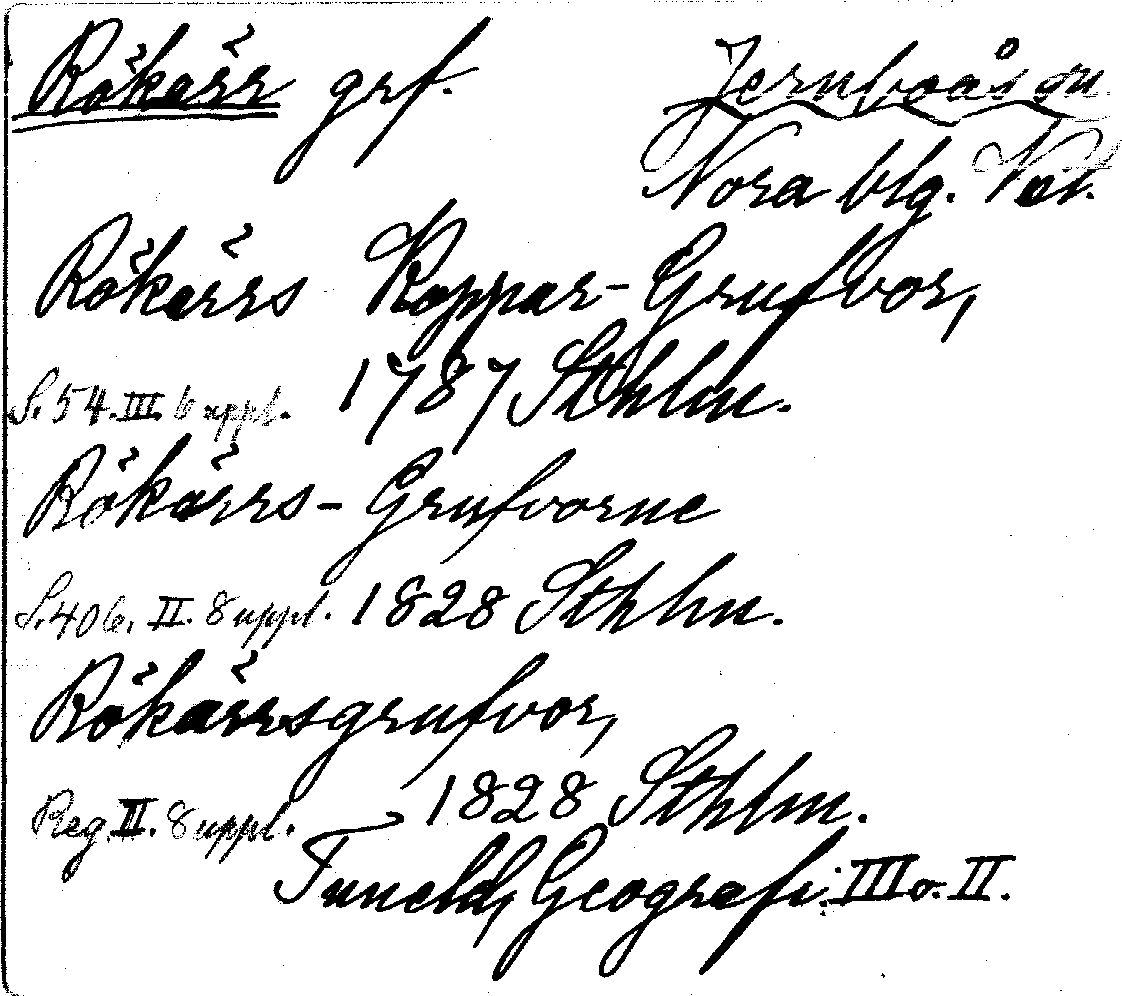 Rökärr grf.
Jernboås sn
Nora blg. Vstl.
Rökärrs Koppar-Grufvor,
S. 54. III. 6 uppl. 1787 Sthlm.
Rökärrs-Grufvorne
S. 406. II. 8 uppl. 1828 Sthlm.
Rökärrsgrufvor,
Reg. II. 8 uppl. 1828 Sthlm.
Tuneld, Geografi: III o. II.